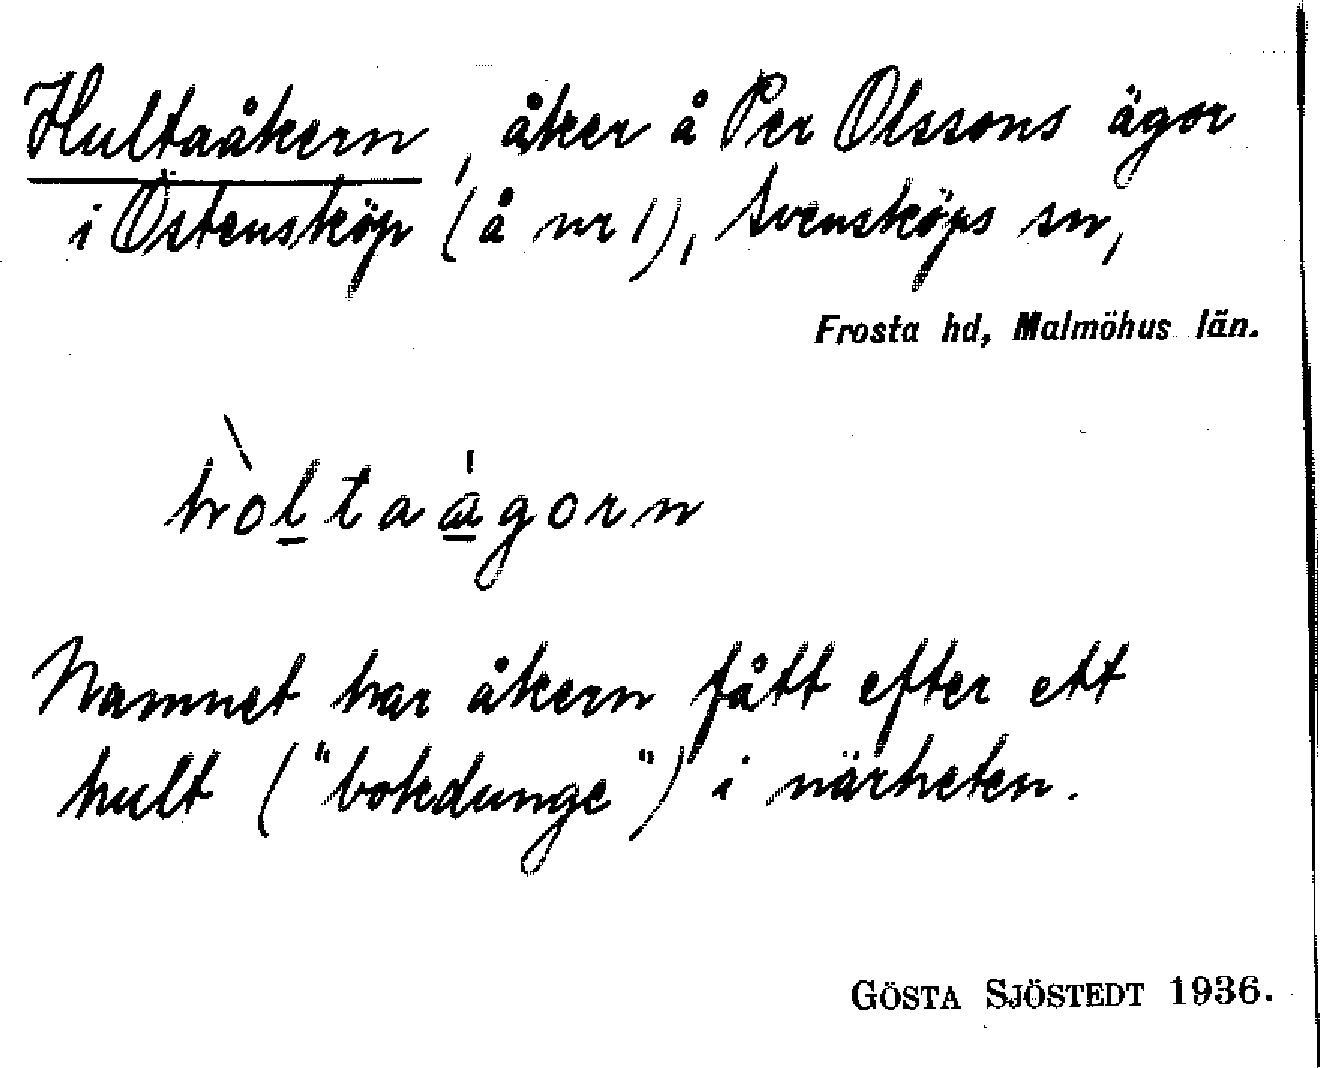 Hultaåkern, åker å Per Olssons ägor
i Östensköp (å nr 1), Svensköps sn,
Frosta hd, Malmöhus län.
hòltaágorn
Namnet har åkern fått efter ett
hult ("bokdunge") i närheten.
GÖSTA SJÖSTEDT 1936.